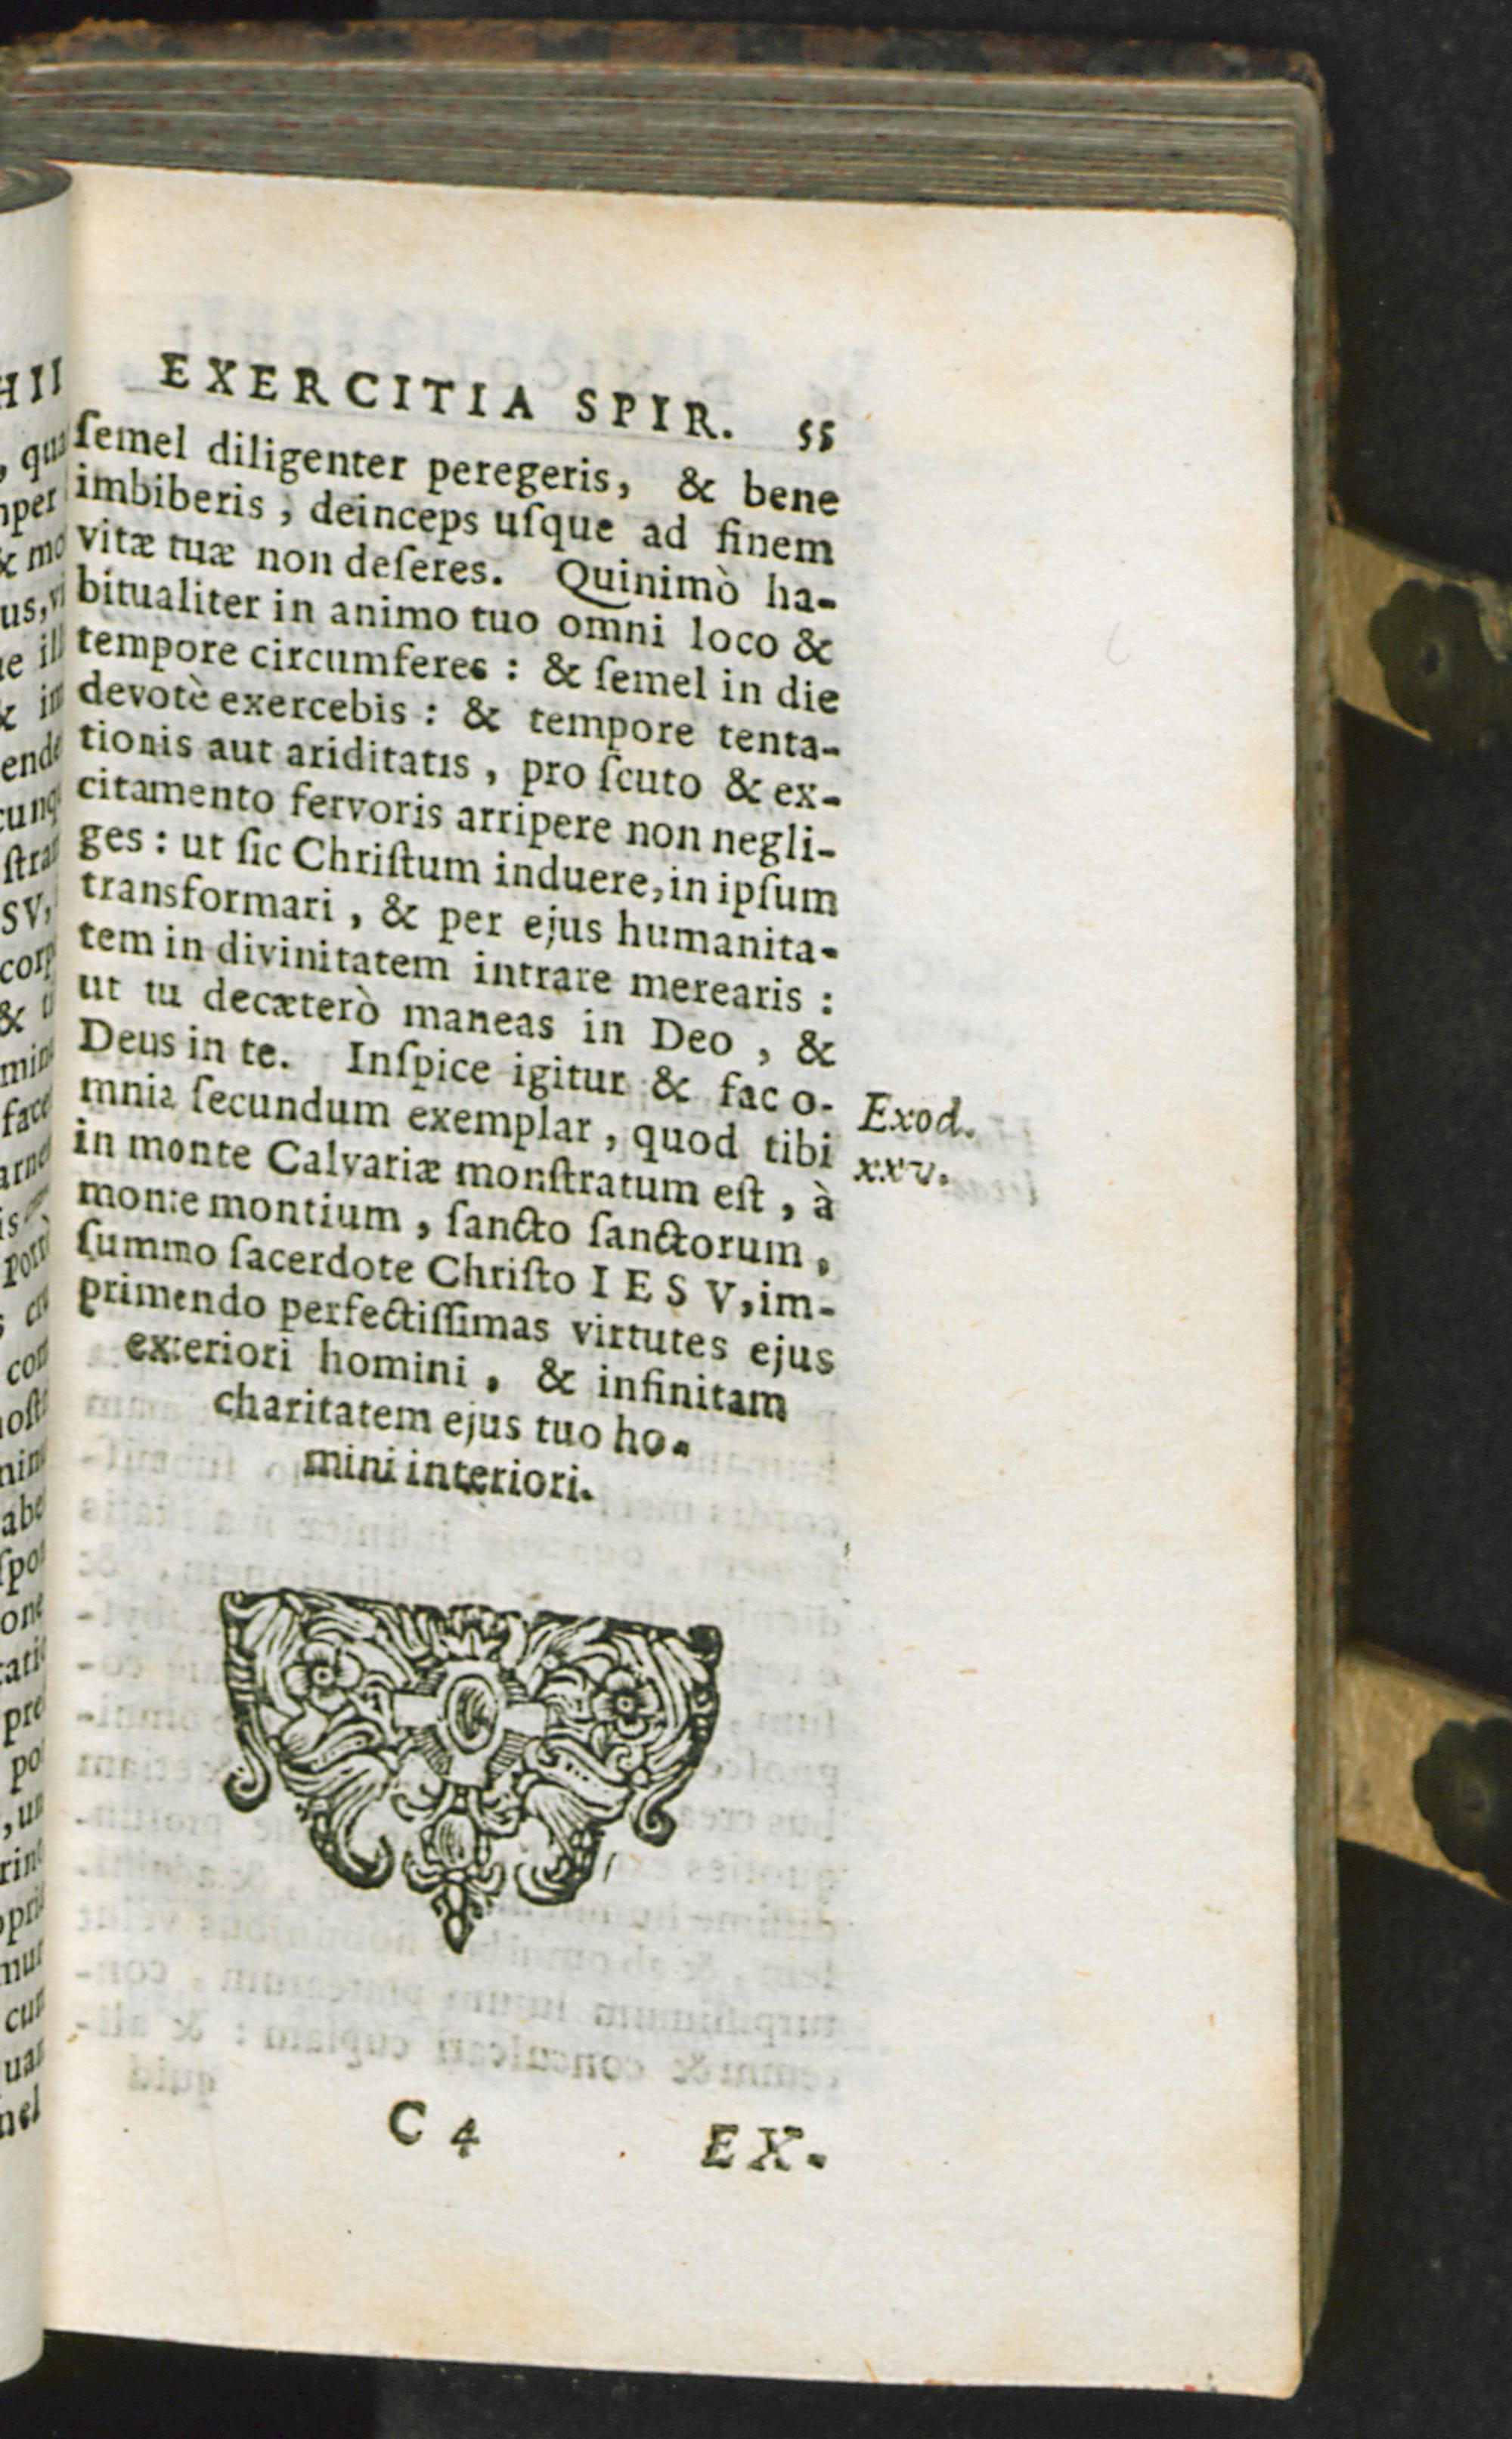 EXERCITIA SPIR. 55
ſemel diligenter peregeris, & bene
imbiberis, deinceps uſque ad finem
vitæ tuæ non deſeres. Quinimò ha-
bitualiter in animo tuo omni loco &
tempore circumferes : & ſemel in die
devotè exercebis : & tempore tenta-
tionis aut ariditatis, pro ſcuto & ex-
citamento fervoris arripere non negli-
ges : ut ſic Chriſtum induere, in ipſum
transformari, & per ejus humanita-
tem in divinitatem intrare merearis :
ut tu decæterò maneas in Deo, &
Deus in te. Inſpice igitur & fac o-
mnia ſecundum exemplar, quod tibi
in monte Calvariæ monſtratum eſt, à
monte montium, ſancto ſanctorum,
ſummo ſacerdote Chriſto IESV, im-
primendo perfectiſſimas virtutes ejus
exteriori homini, & infinitam
charitatem ejus tuo ho-
mini interiori.
Exod.
xxv.
C 4 EX-